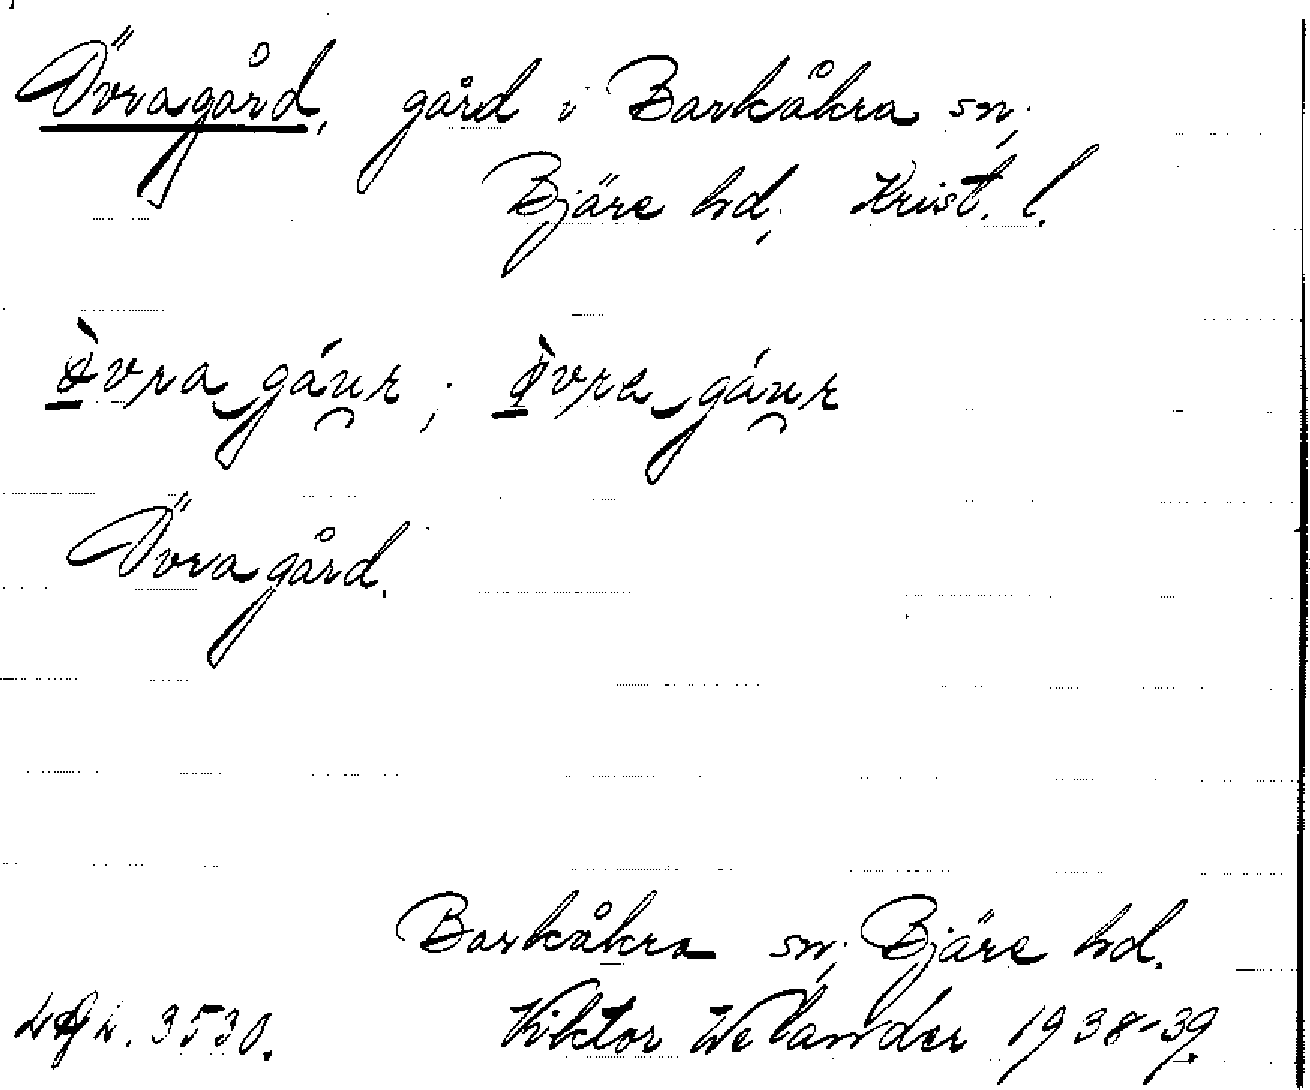 Övragård, gård i Barkåkra sn,
Bjäre hd, Krist. l.
Övragård.
Barkåkra sn, Bjäre hd.
3530. Viktor Welander 1938-39